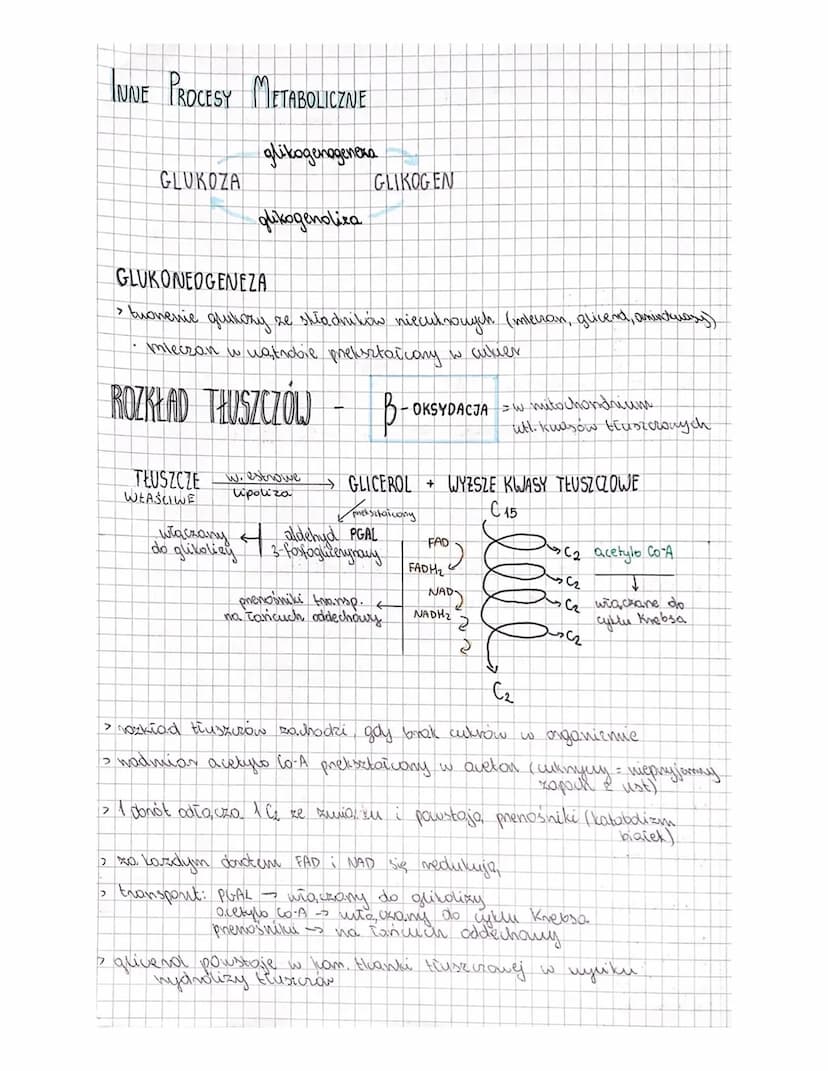 INNE PROCESY METABOLICZNE
glikogenogeneza
GLUKOZA GLIKOGEN
glikogenoliza
GLUKONEOGENEZA
> tworzenie glukozy ze składników niecukrowych (mleczan, glicerol, aminokwasy)
· mleczan w wątrobie przekształcany w cukier
ROZKŁAD TŁUSZCZÓW - β-OKSYDACJA = w mitochondrium
utl. kwasów tłuszczowych
TŁUSZCZE WŁAŚCIWE w. estrowe lipoliza → GLICEROL + WYŻSZE KWASY TŁUSZCZOWE
przekształcony
C 15
włączany do glikolizy ← aldehyd PGAL 3-fosfoglicerynowy
FAD
FADH₂
NAD
NADH₂
przenośniki transp. na łańcuch oddechowy
C₂ acetylo Co-A
C₂
C₂ włączane do cyklu Krebsa
C₂
C₂
> rozkład tłuszczów zachodzi, gdy brak cukrów w organizmie
> nadmiar acetylo Co-A przekształcany w aceton (cukrzycy = nieprzyjemny
zapach z ust)
> 1 obrót odłącza 1 C₂ ze związku i powstają przenośniki (katabolizm
białek)
> za każdym obrotem FAD i NAD się redukują
> transport: PGAL → włączany do glikolizy
acetylo Co-A → włączany do cyklu Krebsa
przenośniki → na łańcuch oddechowy
> glicerol powstaje w kom. tkanki tłuszczowej w wyniku
hydrolizy tłuszczów